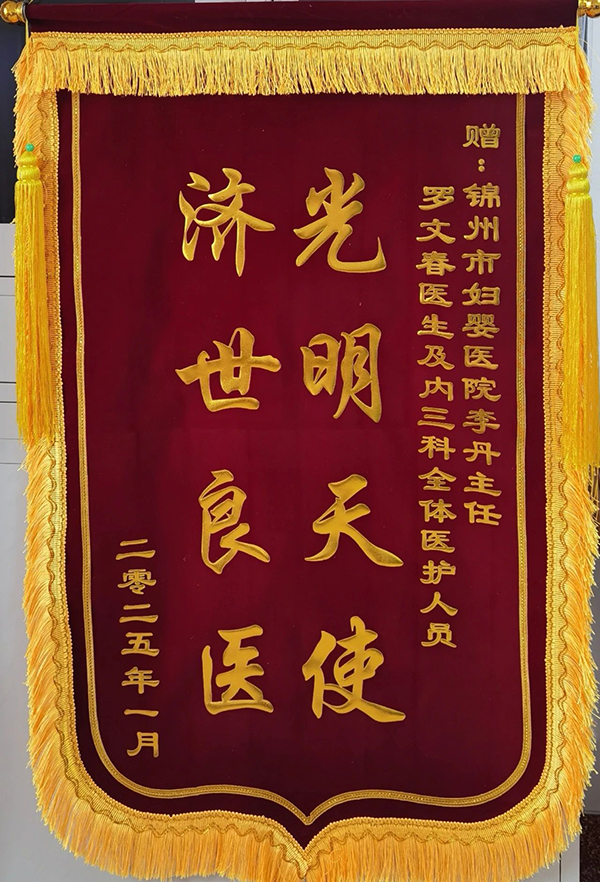 赠：锦州市妇婴医院李丹主任
罗文春医生及内三科全体医护人员
光明天使
济世良医
二零二五年一月